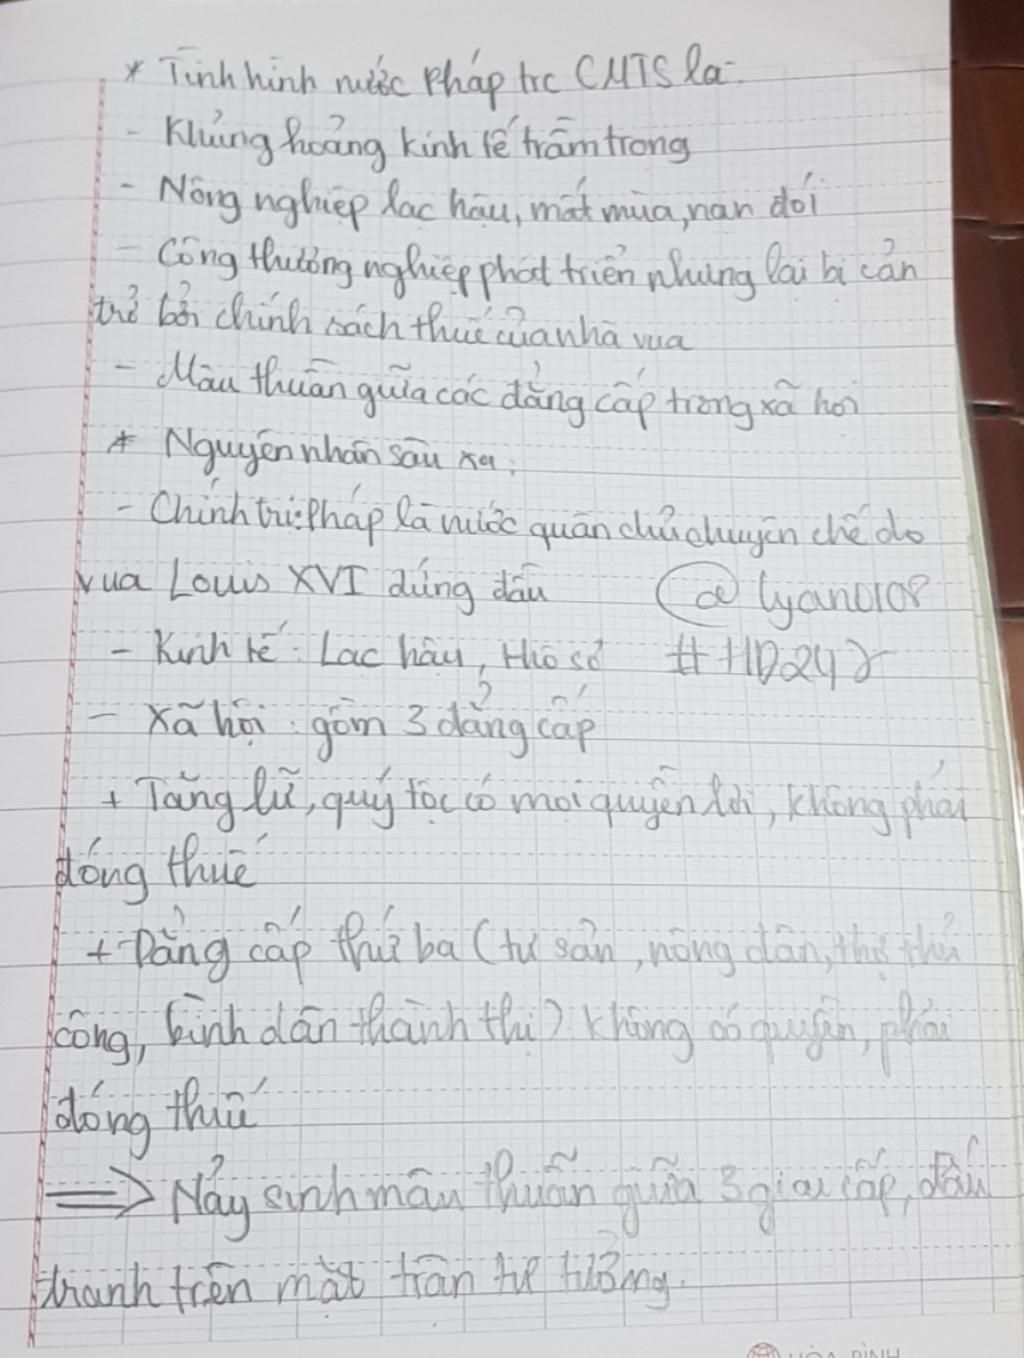 * Tình hình nước Pháp trc CMTS là:
- Khủng hoảng kinh tế trầm trọng
- Nông nghiệp lạc hậu, mất mùa, nạn đói
- Công thương nghiệp phát triển nhưng lại bị cản
trở bởi chính sách thuế của nhà vua
- Mâu thuẫn giữa các đẳng cấp trong xã hội
* Nguyên nhân sâu xa:
- Chính trị: Pháp là nước quân chủ chuyên chế do
vua Louis XVI đứng đầu @lyano108
- Kinh tế: Lạc hậu, thô sơ #HD242
- Xã hội: gồm 3 đẳng cấp
+ Tăng lữ, quý tộc có mọi quyền lợi, không phải
đóng thuế
+ Đẳng cấp thứ ba (tư sản, nông dân, thợ thủ
công, bình dân thành thị) không có quyền, phải
đóng thuế
⇒ Nảy sinh mâu thuẫn giữa 3 giai cấp, đấu
tranh trên mặt trận tư tưởng.
HÒA BÌNH